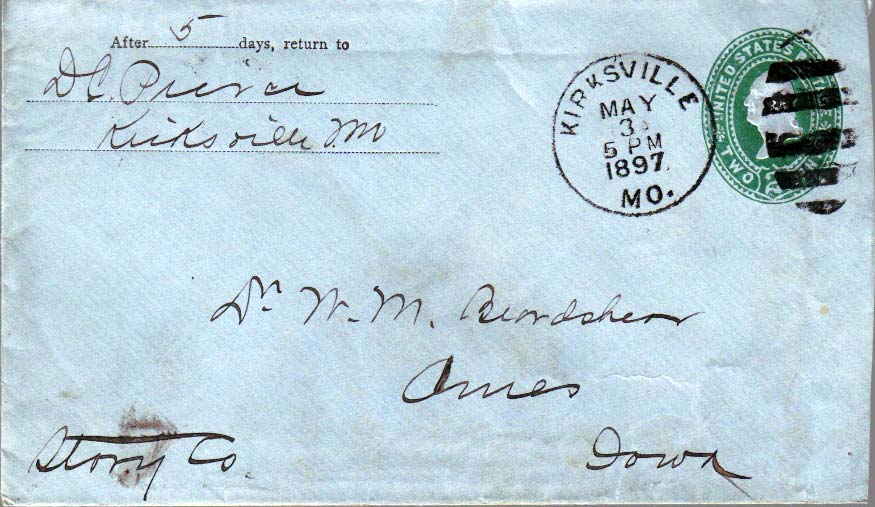 After 5 days, return to
D.C. Pierce
Kirksville Mo
KIRKSVILLE
MAY
3
5 PM
1897
MO.
UNITED STATES
TWO
2
Dr. W. M. Beardshear
Ames
Story Co.
Iowa